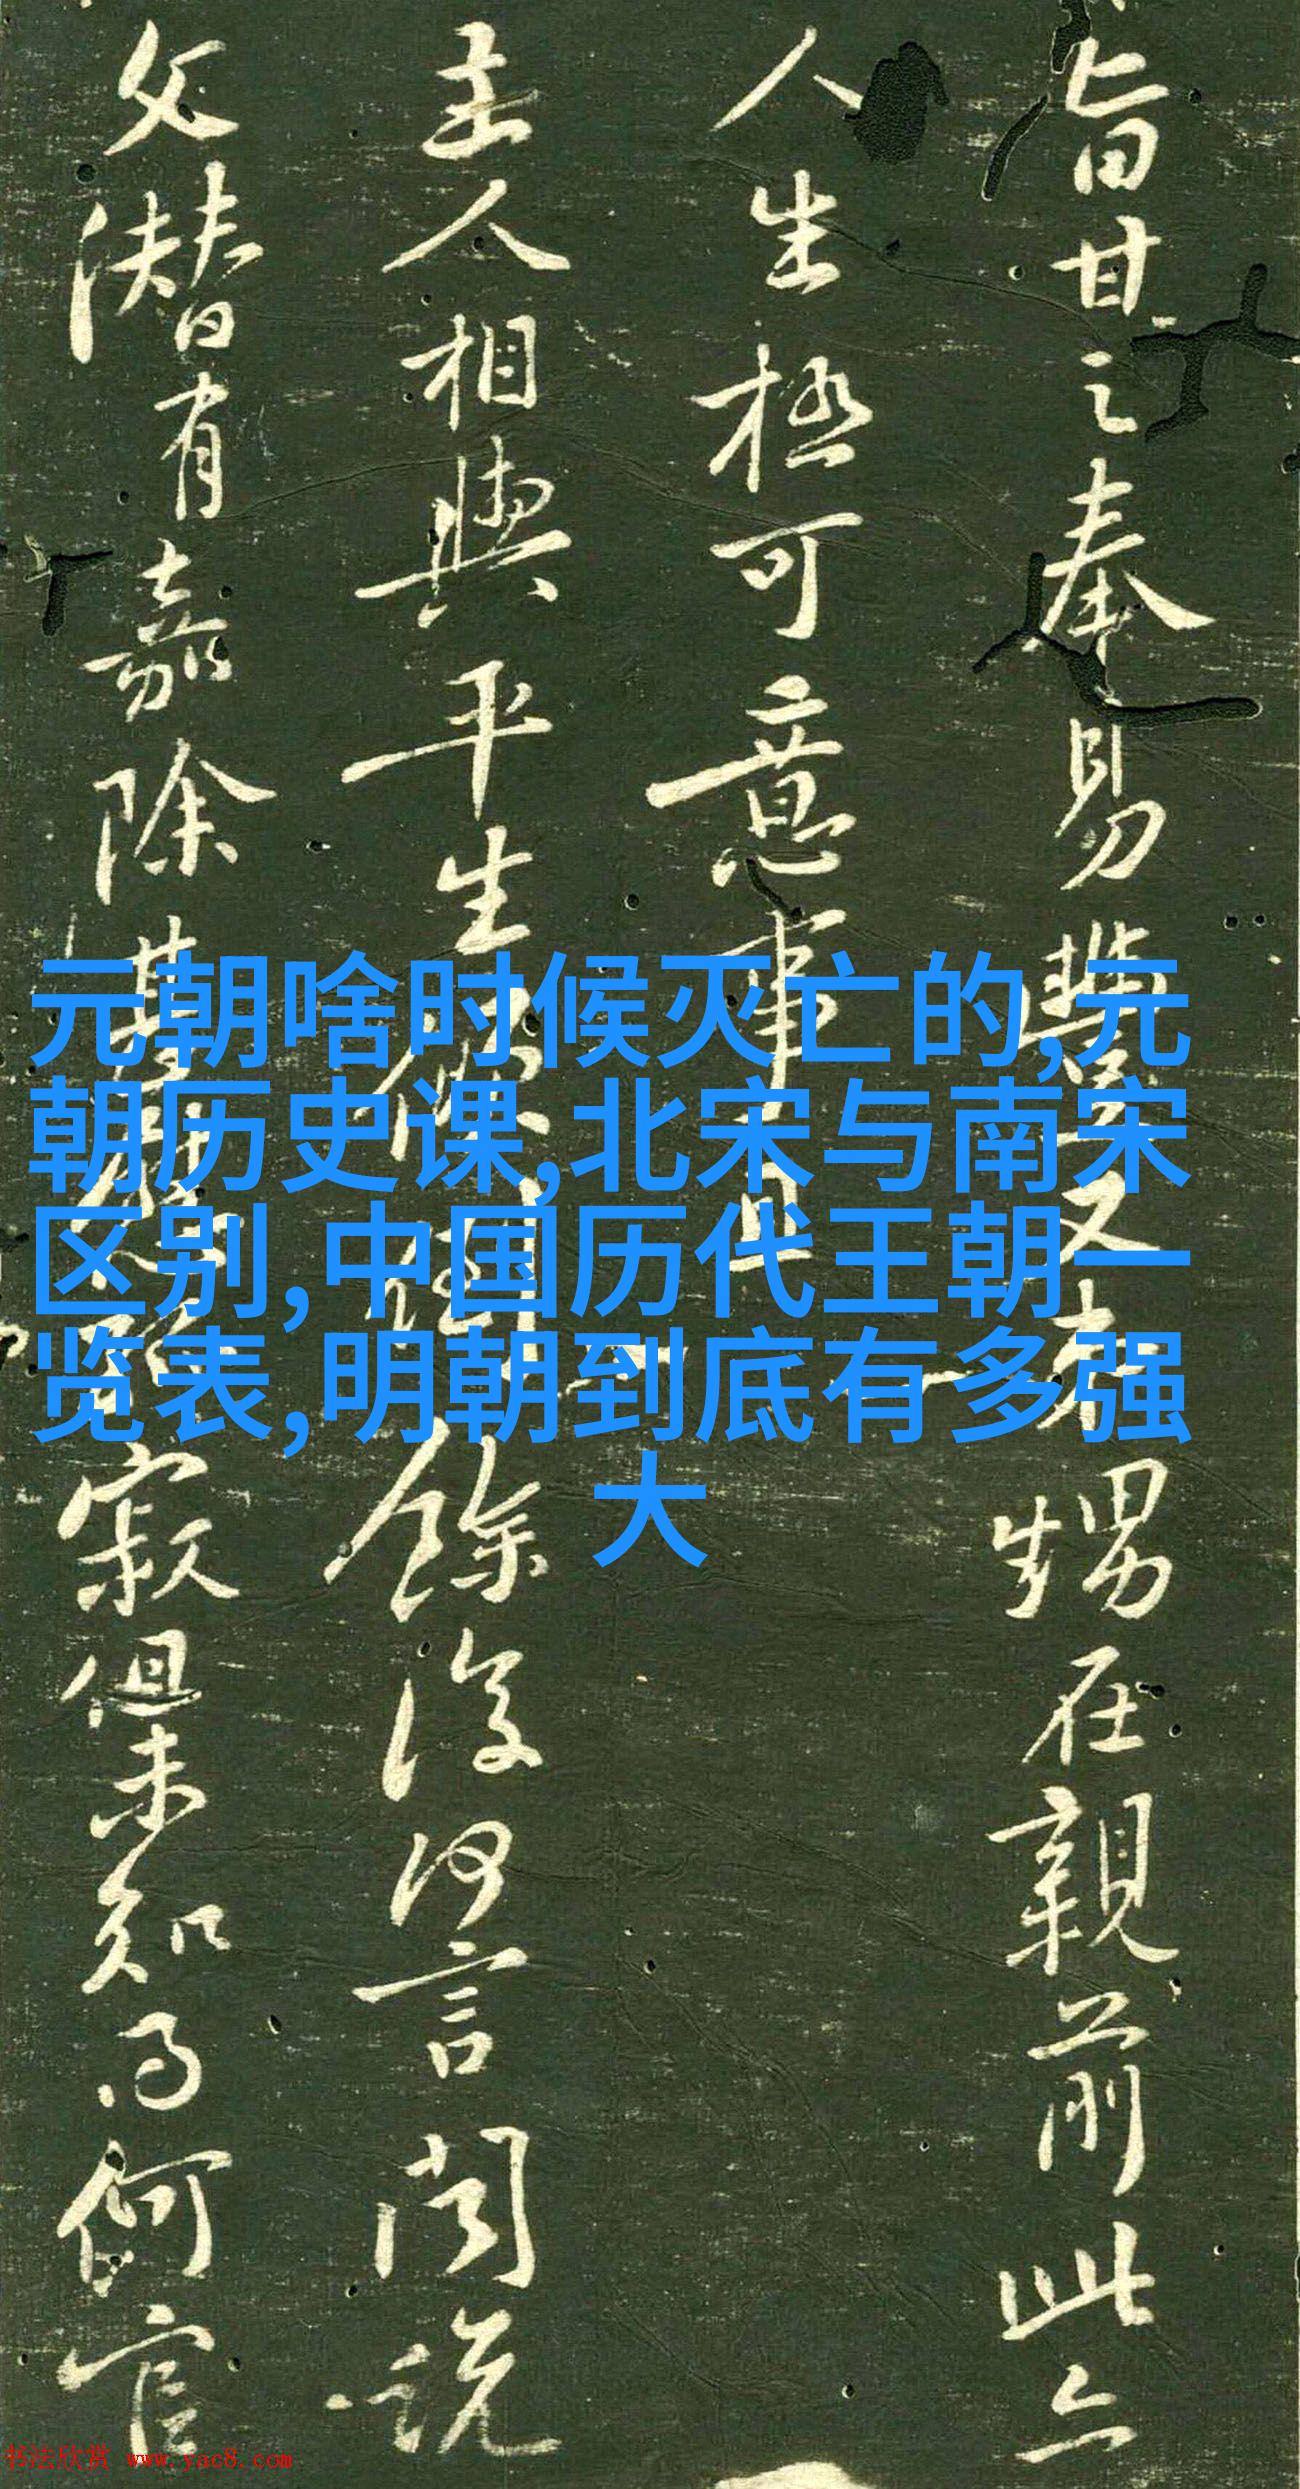 旨甘之奉易豐又未甥在親前此亦
人生極可意事且
主人相與平生
餘復何言聞說
父潛有嘉除
寂但未知為何官
元朝啥时候灭亡的,元
朝历史课,北宋与南宋
区别,中国历代王朝一
览表,明朝到底有多强
大
书法欣赏 www.yac8.com